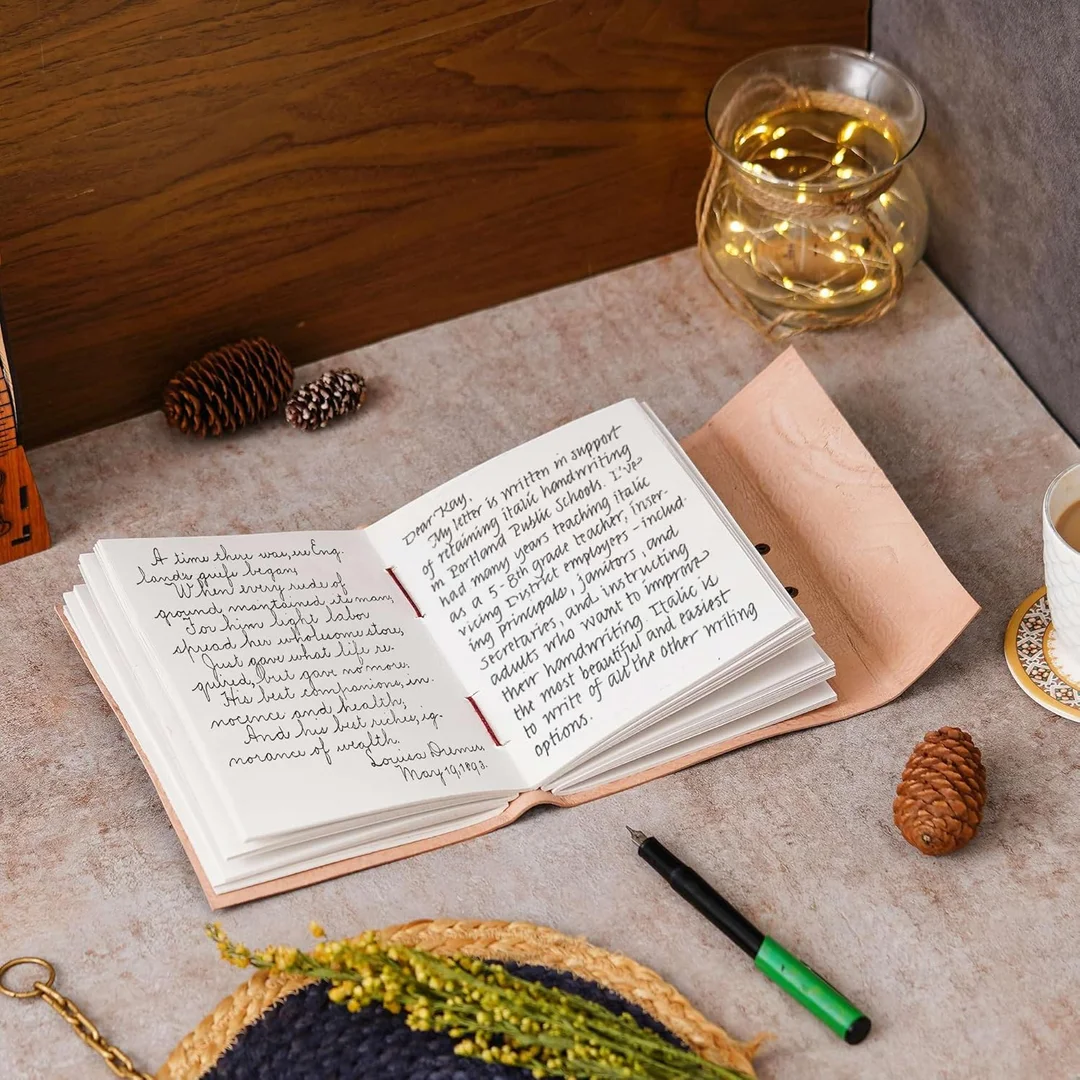 A time there was, ere Eng-
land's griefs began,
When every rude of
ground maintained its man;
For him light labor
spread her wholesome store,
Just gave what life re-
quired, but gave no more;
His best companions, in-
nocence and health;
And his best riches, ig-
norance of wealth.
Louisa
May 19, 1893.
Dear Kay,
My letter is written in support
of retaining italic handwriting
in Portland Public Schools. I've
had many years teaching italic
as a 5-8th grade teacher, inser-
vicing District employees - includ
ing principals, janitors, and
secretaries, and instructing
adults who want to improve
their handwriting. Italic is
the most beautiful and easiest
to write of all the other writing
options.